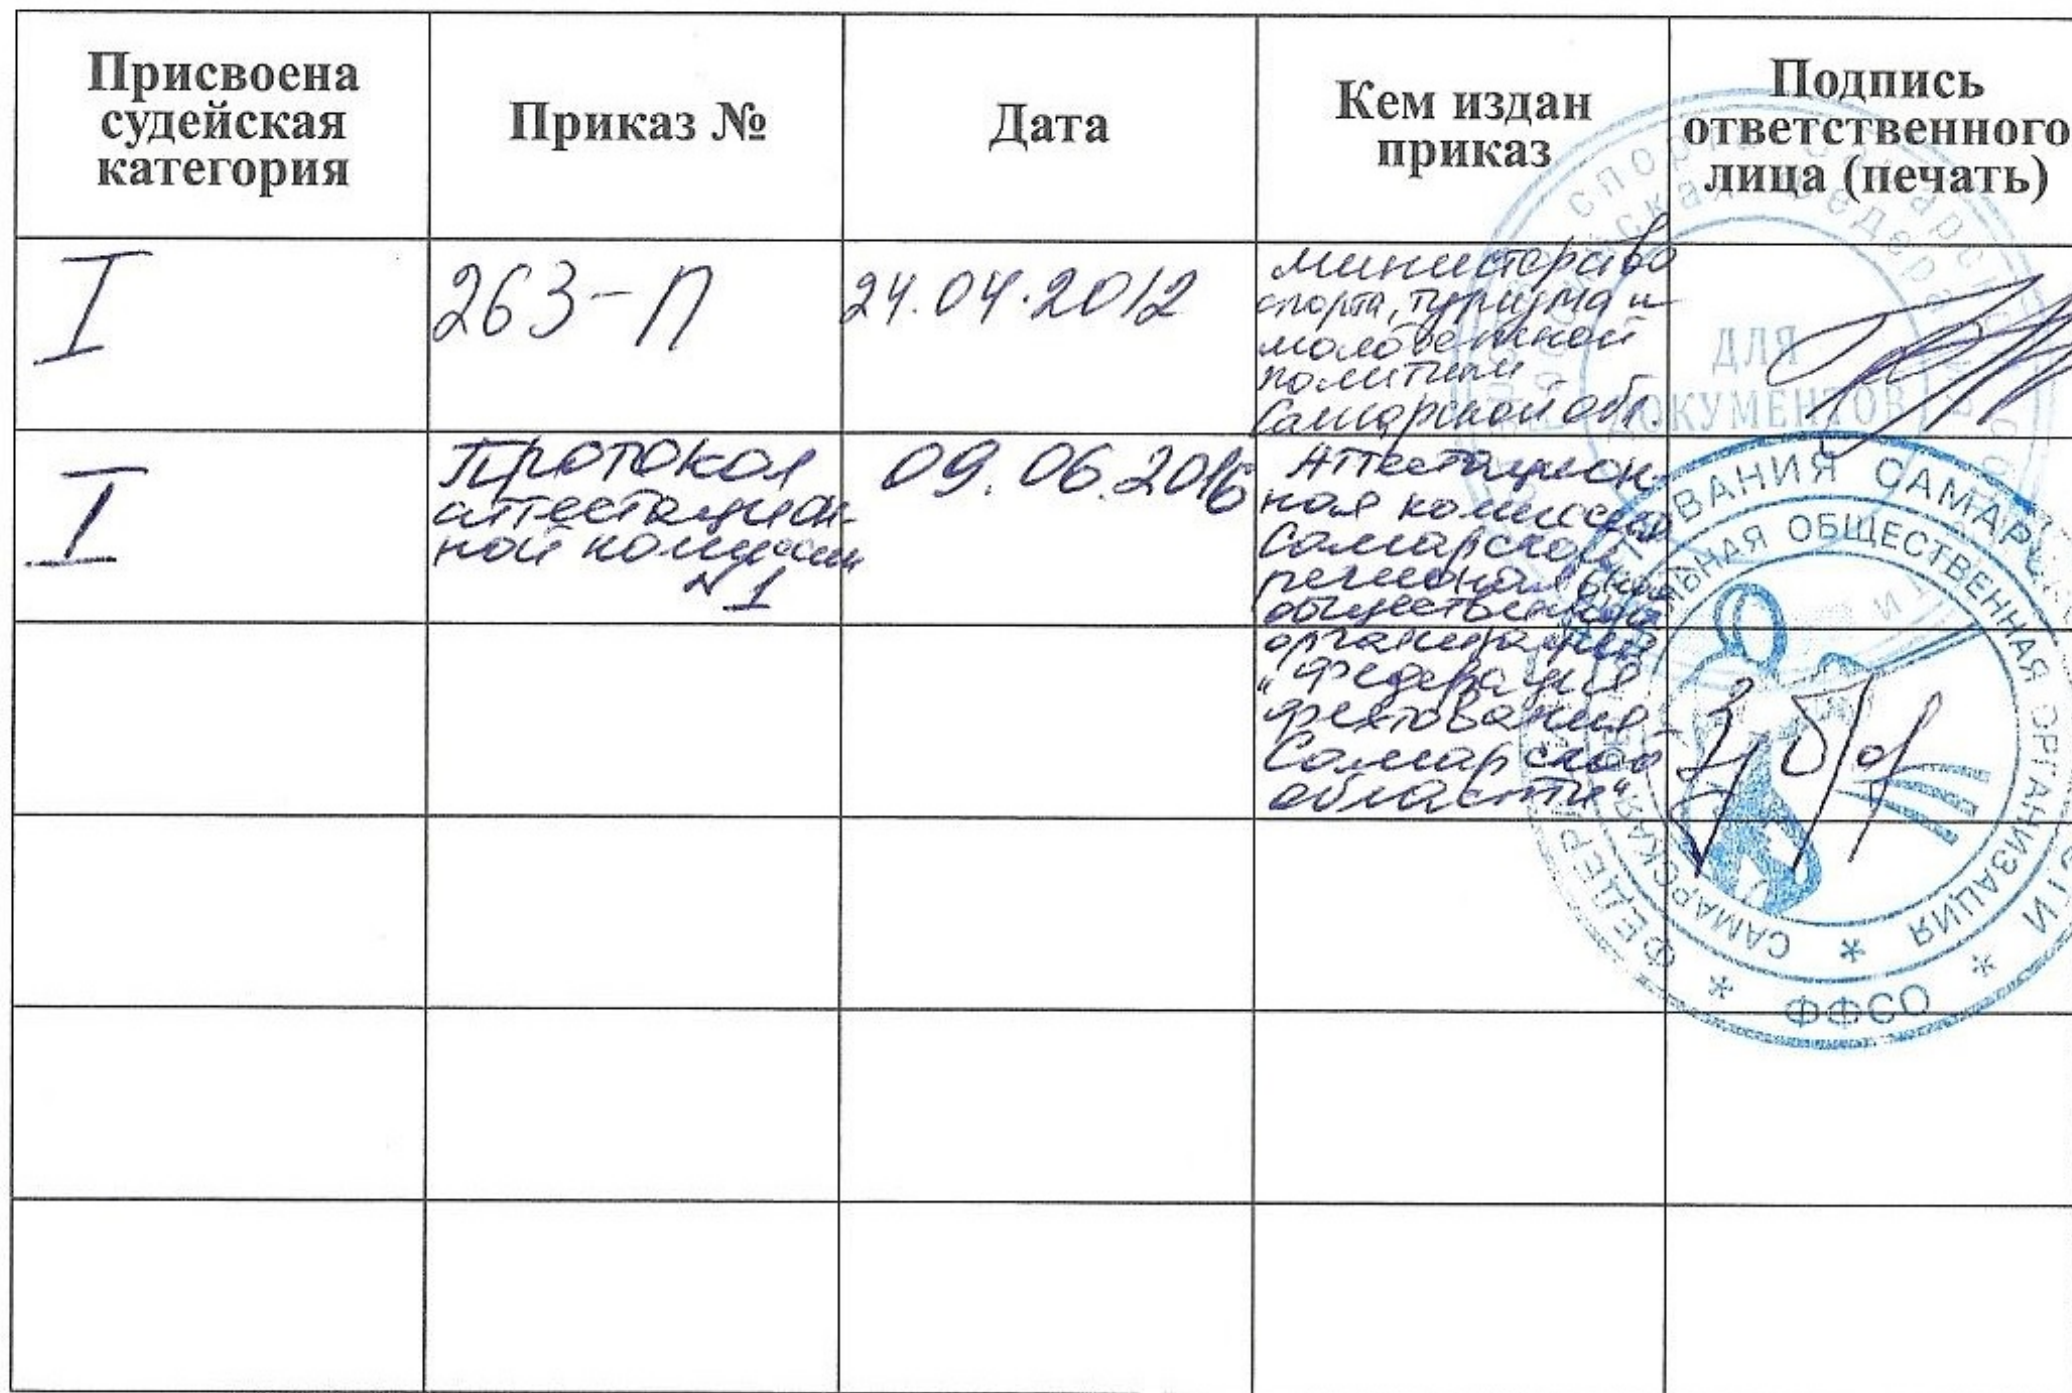 Присвоена
судейская
категория
Приказ №
Дата
Кем издан
приказ
Подпись
ответственного
лица (печать)
I
263-П
24.04.2012
Министерство
спорта, туризма и
молодежной
политики
Самарской обл.
ДЛЯ
ДОКУМЕНТОВ
I
Протокол
аттестацион-
ной комиссии
№1
09.06.2016
Аттестацион-
ная комиссия
Самарской
региональной
общественной
организации
"Федерация
фехтования
Самарской
области"
ВАНИЯ САМАР
ЛЬНАЯ ОБЩЕСТВЕННАЯ ОРГАНИЗАЦИЯ * САМАРСКАЯ
* ФФСО *
ФЕДЕР